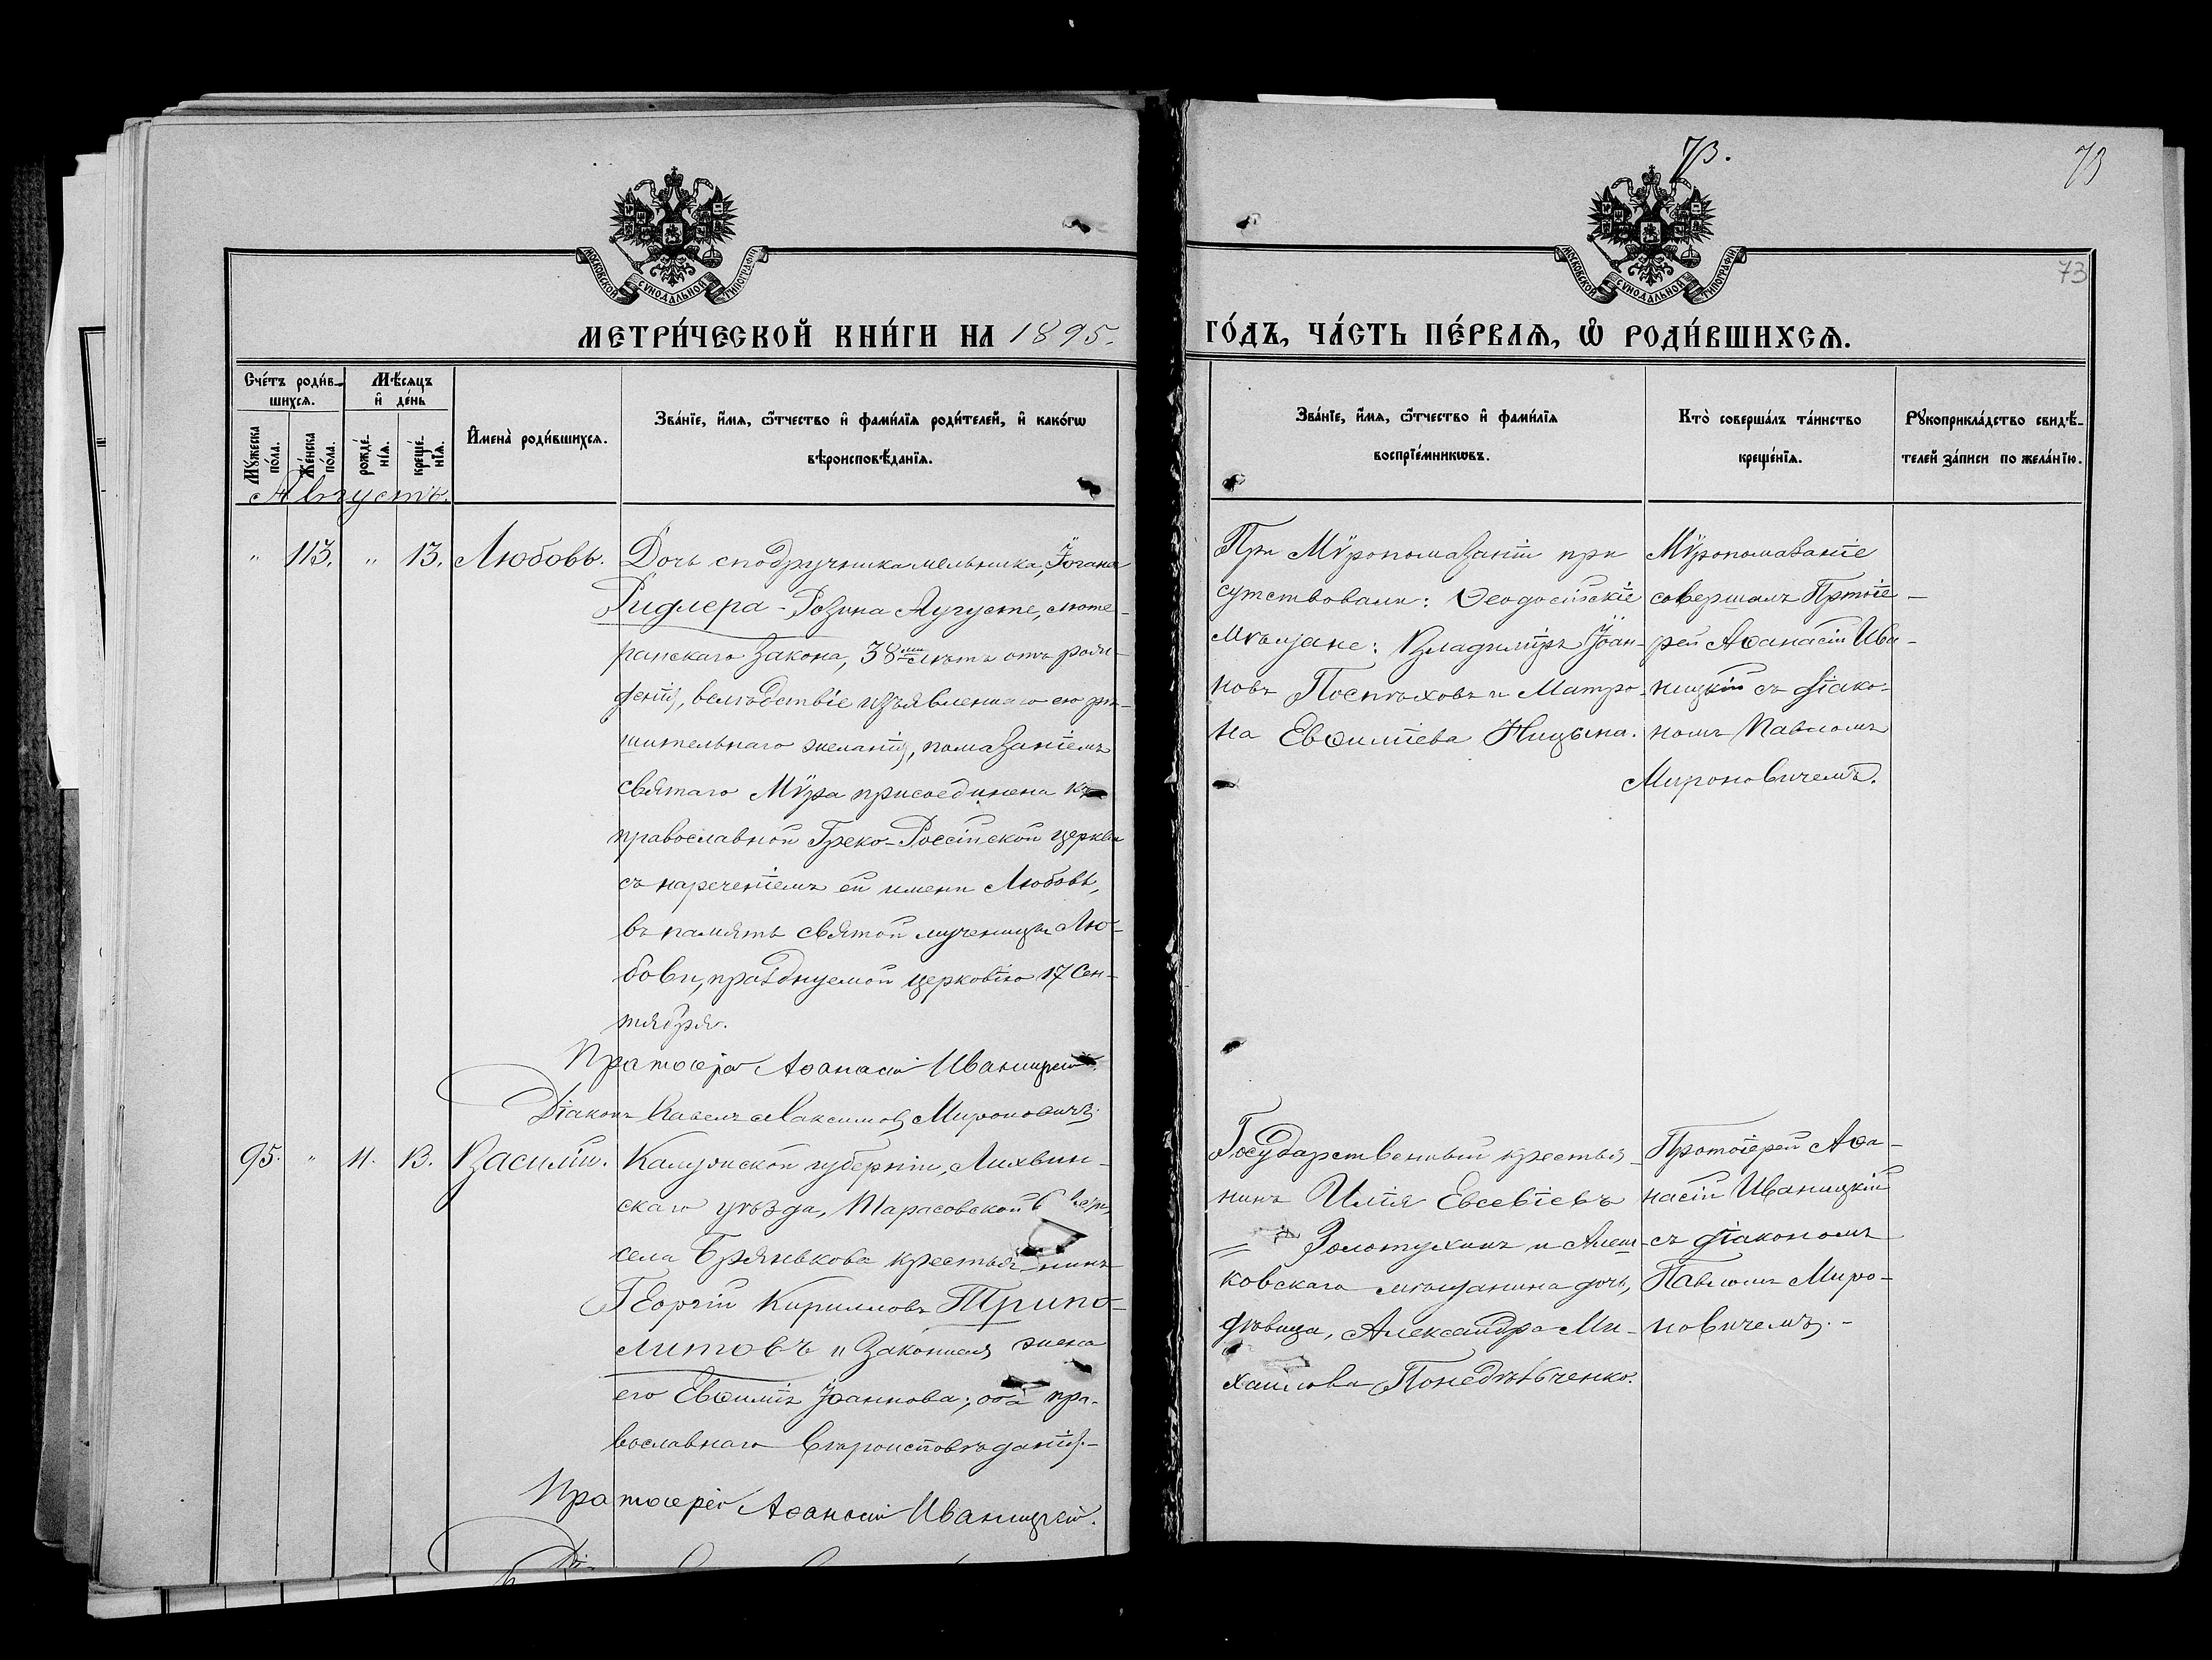 73.
73
73
МОСКОВСКОЙ СѴНОДАЛЬНОЙ ТИПОГРАФІИ
МОСКОВСКОЙ СѴНОДАЛЬНОЙ ТИПОГРАФІИ
МЕТРИ́ЧЕСКОЙ КНИ́ГИ НА 1895.
ГО́ДЪ, ЧА́СТЬ ПЕ́РВАѦ, Ѡ҆ РОДИ́ВШИХСѦ.
Сче́тъ роди́в-
шихсѧ.
Мѣ́сѧцъ
и҆ де́нь
Мꙋ́жеска по́ла.
Же́нска по́ла.
рожде́нїѧ.
креще́нїѧ.
И҆мена̀ роди́вшихсѧ.
Зва́нїе, и҆́мѧ, ѻ҆́тчество и҆ фами́лїѧ роди́телей, и҆ како́гѡ
вѣроисповѣ́данїѧ.
Зва́нїе, и҆́мѧ, ѻ҆́тчество и҆ фами́лїѧ
воспрїе́мникѡвъ.
Кто̀ соверша́лъ та́инство
креще́нїѧ.
Рꙋкоприкла́дство свидѣ́-
телей за́писи по жела́нїю.
Августъ.
" 113. " 13. Любовь.
Дочь сподручника мельника, Іогана
Ридлера - Розина Аугусте, люте-
ранскаго закона, 38ми лѣтъ отъ рож-
денія, вслѣдствіе изъявленнаго ею рѣ-
шительнаго желанія, помазаніемъ
святаго Мѵра присоединена къ
православной Греко-Россійской церкви
съ нареченіемъ ей имени Любовь,
въ память святой мученицы Лю-
бови, празднуемой церковію 17 Сен-
тября.
Протоіерей Аѳанасій Иваницкій.
Діаконъ Павелъ Максимовъ Мироновичъ.
При Мѵропомазаніи при
сутствовали: Ѳеодосійскіе
мѣщане: Владиміръ Іоан-
новъ Поспѣховъ и Матро-
на Евѳиміева Ницына.
Мѵропомазаніе
совершалъ Протоіе-
рей Аѳанасій Ива-
ницкій съ діако-
номъ Павломъ
Мироновичемъ.
95. " 11. 13. Василій.
Калужской губерніи, Лихвин-
скаго уѣзда, Тарасовской
села Брянькова крестьянинъ
Георгій Кирилловъ Трипо-
литовъ и законная жена
его Евѳимія Іоаннова; оба пра-
вославнаго вѣроисповѣданія.-
Протоіерей Аѳанасій Иваницкій.
Государственный крестья-
нинъ Илія Евсевіевъ
Золотухинъ и Алеш-
ковскаго мѣщанина дочь,
дѣвица, Александра Ми-
хаилова
Протоіерей Аѳа-
насій Иваницкій
съ діакономъ
Павломъ Миро-
новичемъ.-